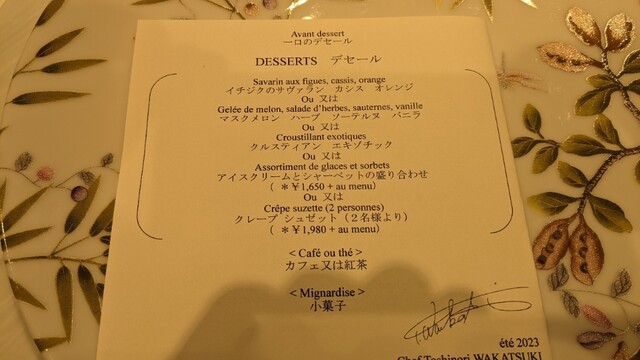 Avant dessert
一口のデセール
DESSERTS デセール
Savarin aux figues, cassis, orange
イチジクのサヴァラン カシス オレンジ
Ou 又は
Gelée de melon, salade d'herbes, sauternes, vanille
マスクメロン ハーブ ソーテルヌ バニラ
Ou 又は
Croustillant exotiques
クルスティアン エキゾチック
Ou 又は
Assortiment de glaces et sorbets
アイスクリームとシャーベットの盛り合わせ
( *￥1,650 + au menu)
Ou 又は
Crêpe suzette (2 personnes)
クレープ シュゼット（２名様より）
( *￥1,980 + au menu)
< Café ou thé >
カフェ又は紅茶
< Mignardise >
小菓子
été 2023
Chef Toshinori WAKATSUKI